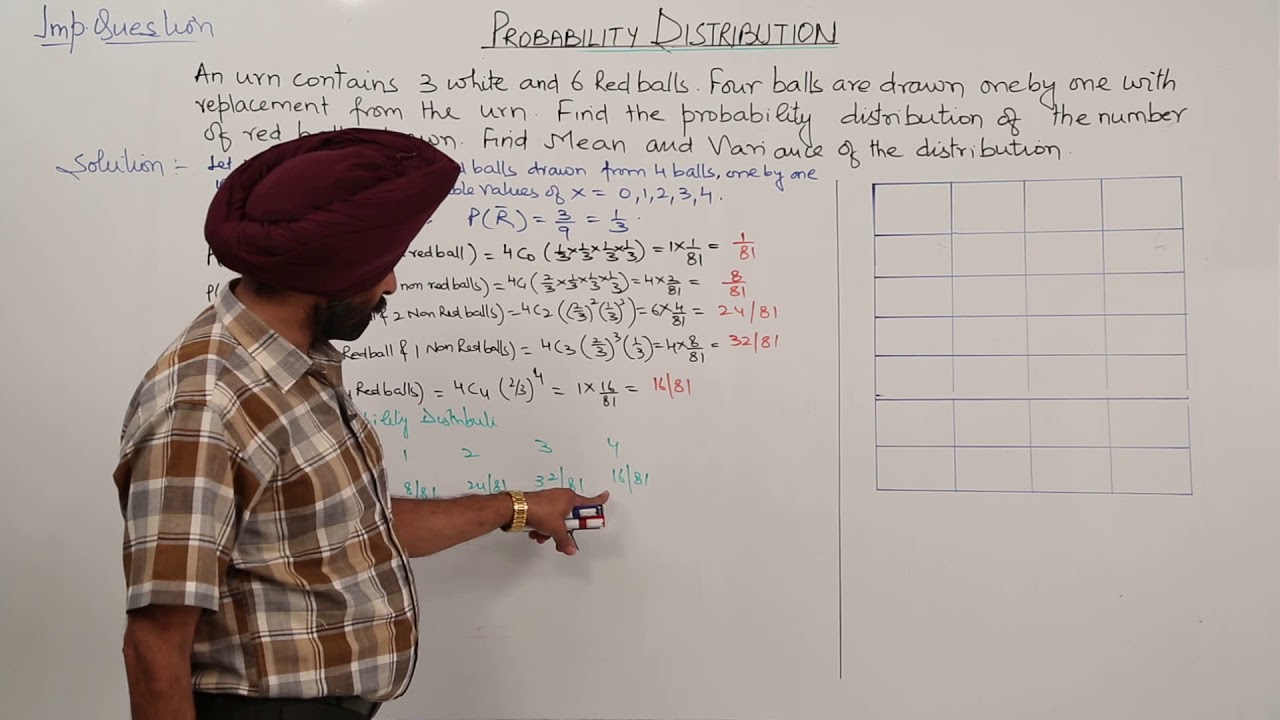 Imp. Question
PROBABILITY DISTRIBUTION
An urn contains 3 white and 6 Red balls. Four balls are drawn one by one with
replacement from the urn. Find the probability distribution of the number
of red drawn. Find Mean and Variance of the distribution.
Solution :- Let balls drawn from 4 balls, one by one
values of x = 0, 1, 2, 3, 4.
P(R̄) = 3/9 = 1/3.
red ball) = 4C0 (1/3×1/3×1/3×1/3) = 1×1/81 = 1/81
non red balls) = 4C1 (2/3×1/3×1/3×1/3) = 4×2/81 = 8/81
& 2 Non Red balls) = 4C2 ((2/3)²(1/3)²) = 6×4/81 = 24/81
Red ball & 1 Non Red balls) = 4C3 (2/3)³(1/3) = 4×8/81 = 32/81
Red balls) = 4C4 (2/3)⁴ = 1×16/81 = 16/81
1 2 3 4
8/81 24/81 32/81 16/81